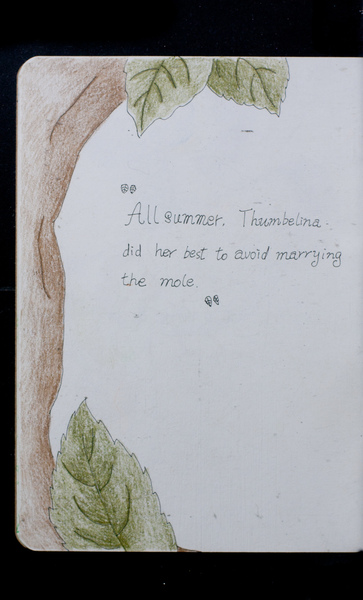 "
All summer, Thumbelina
did her best to avoid marrying
the mole.
"